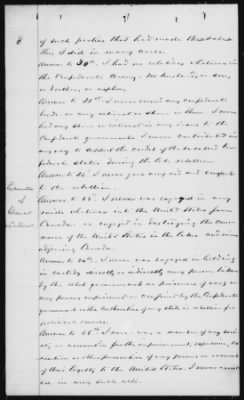 of such parties that had made threats but
this I did in many cases.
Answer to 20th. I had no relatives whatever in
the Confederate Army. No husband, or son,
or brother, or nephew.
Answer to 21st. I never owned any confederate
bonds or any interest or share in them. I never
had any share or interest in any loans to the
Confederate government. I never contributed in
any way to support the credit of the so called Con-
federate States during the late rebellion.
Answer to 22. I never gave any aid and comfort
to the rebellion.
Answer to 23. I never was engaged in any
raids whatever into the United States from
Canada or engaged in destroying the com-
merce of the United States in the lakes and rivers
adjoining Canada.
Answer to 24th. I never was engaged in holding
in custody directly or indirectly any person taken
by the rebel government as prisoners of war, or
any person imprisoned or confined by the Confederate
government or the authorities of any state in rebellion for
political causes.
Answer to 25th. I never was a member of any
or committee for the imprisonment, expulsion,
execution or other persecution of any person on account
of their loyalty to the United States. I never
ed in any such acts.
of